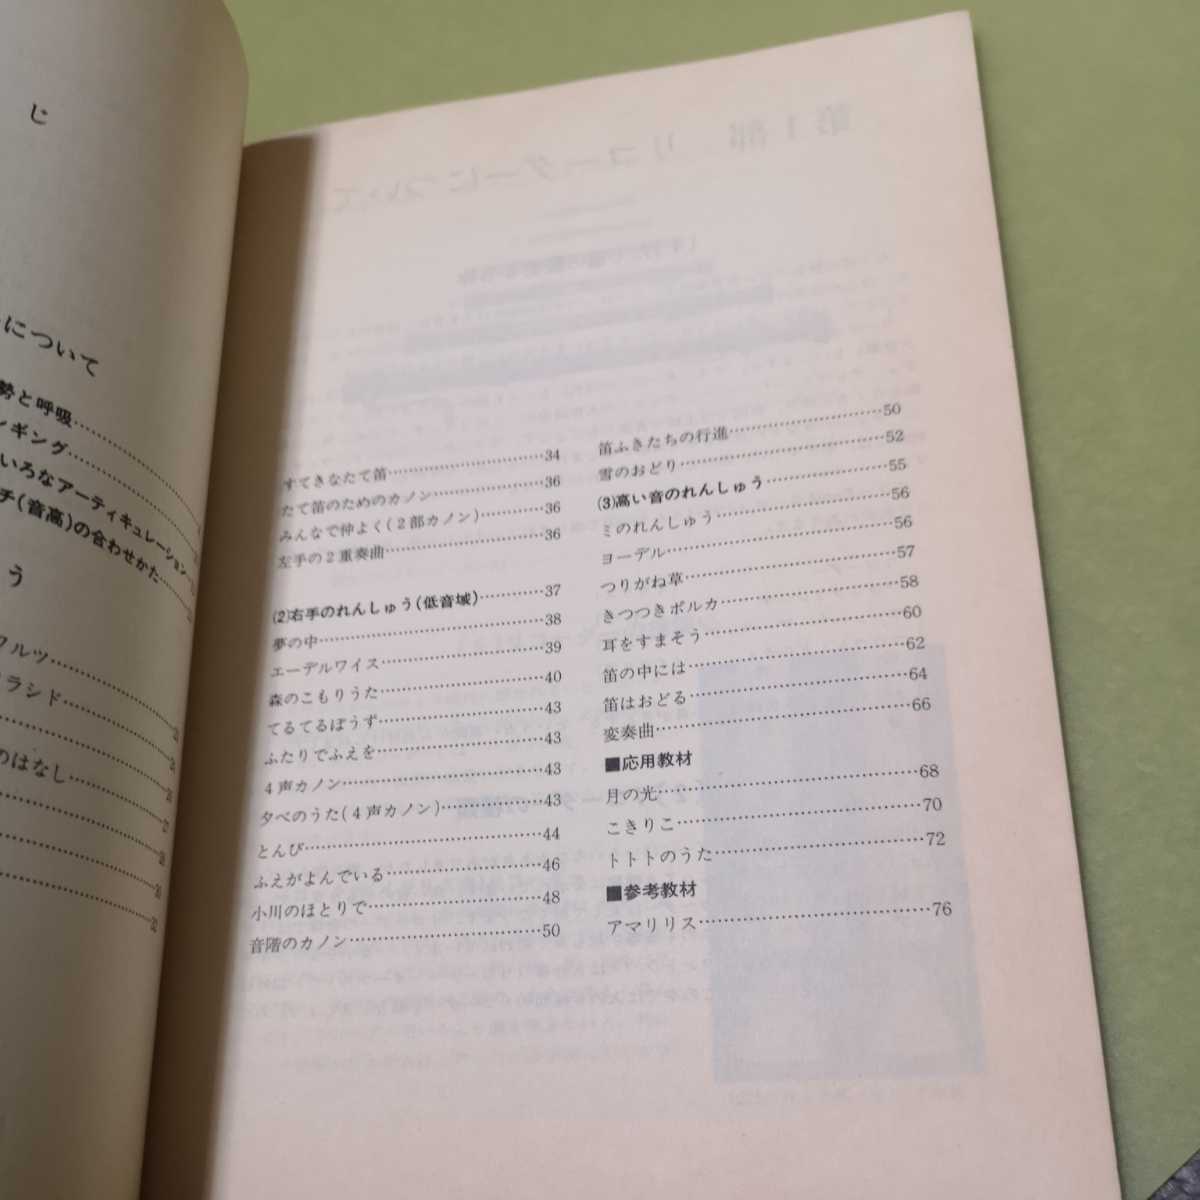 じ
について
勢と呼吸
ンギング
いろなアーティキュレーション
チ(音高)の合わせかた
う
ワルツ
ラシド
のはなし
すてきなたて笛 34
たて笛のためのカノン 36
みんなで仲よく(2部カノン) 36
左手の2重奏曲 36
(2)右手のれんしゅう(低音域) 37
夢の中 38
エーデルワイス 39
森のこもりうた 40
てるてるぼうず 43
ふたりでふえを 43
4声カノン 43
夕べのうた(4声カノン) 43
とんび 44
ふえがよんでいる 46
小川のほとりで 48
音階のカノン 50
笛ふきたちの行進 50
雪のおどり 52
(3)高い音のれんしゅう 55
ミのれんしゅう 56
ヨーデル 56
つりがね草 57
きつつきポルカ 58
耳をすまそう 60
笛の中には 62
笛はおどる 64
変奏曲 66
■応用教材
月の光 68
こきりこ 70
トトトのうた 72
■参考教材
アマリリス 76